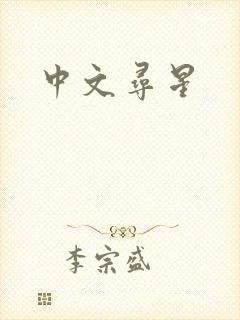 中文尋星
李宗盛